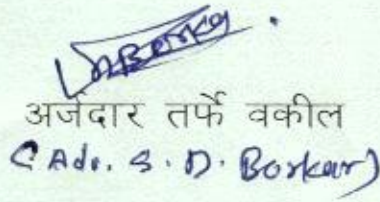 अर्जदार तर्फे वकील
(Adv. S. D. Borkar)